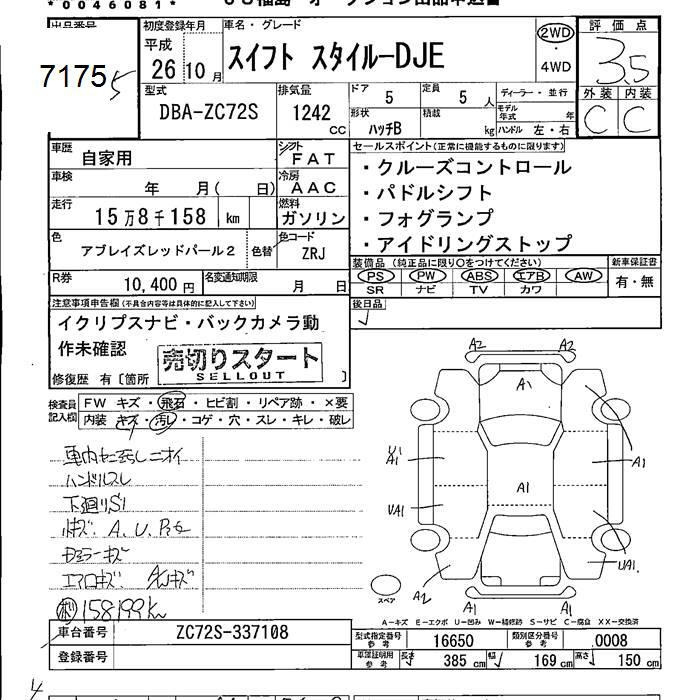 *0046081*
出品番号
7175
初度登録年月
平成
26年10月
車名・グレード
スイフト スタイルーDJE
2WD
・
4WD
評価点
3.5
外装 内装
C C
型式
DBA-ZC72S
排気量
1242
cc
ドア
5
定員
5 人
形状
ハッチB
積載
kg
ディーラー・並行
モデル年式 年
ハンドル 左・右
車歴
自家用
シフト
FAT
車検
年 月( 日)
冷房
AAC
走行
15万8千158 km
燃料
ガソリン
色
アブレイズレッドパール2
色替
色コード
ZRJ
R券
10,400円
名変通知期限
月 日
セールスポイント(正常に機能するものに限ります)
・クルーズコントロール
・パドルシフト
・フォグランプ
・アイドリングストップ
装備品(純正品に限り○をつけてください)
PS PW ABS エアB AW
SR ナビ TV カワ
新車保証書
有・無
後日品
注意事項申告欄(不具合内容等は具体的に記入して下さい)
イクリプスナビ・バックカメラ動
作未確認
売切りスタート
SELLOUT
修復歴 有〔箇所 〕
検査員
記入欄
FW キズ・飛石・ヒビ割・リペア跡・×要
内装 キズ・汚レ・コゲ・穴・スレ・キレ・破レ
ハンドルスレ
下廻りS1
158199km
A2 A2
A1
A1
A1
A1
UA1
UA1
A2
A1 A1
スペア
A-キズ E-エクボ U-凹み W-補修跡 S-サビ C-腐食 XX-交換済
車台番号
ZC72S-337108
登録番号
型式指定番号
参考
16650
類別区分番号
参考
0008
車庫証明用
参考
長さ
385 cm
幅
169 cm
高さ
150 cm